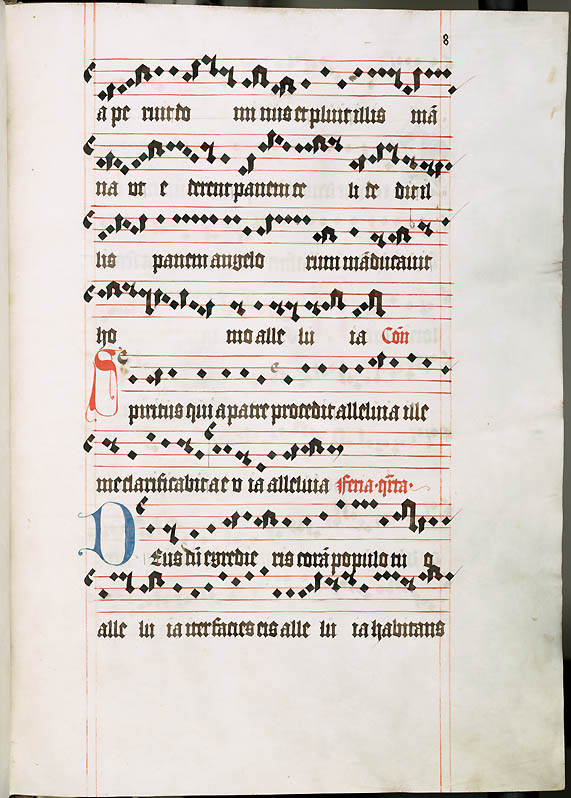 8
a pe ruit do mi nus et pluit illis mā
na vt e derent panem ce li de dit il
lis panem angelo rum māducauit
ho mo alle lu ia Cōn
Spiritus qui a patre procedit alleluia ille
me clarificabit ae v ia alleluia Feria q̄rta
Deus dū egredie ris corā populo tu o
alle lu ia iter facies eis alle lu ia habitans